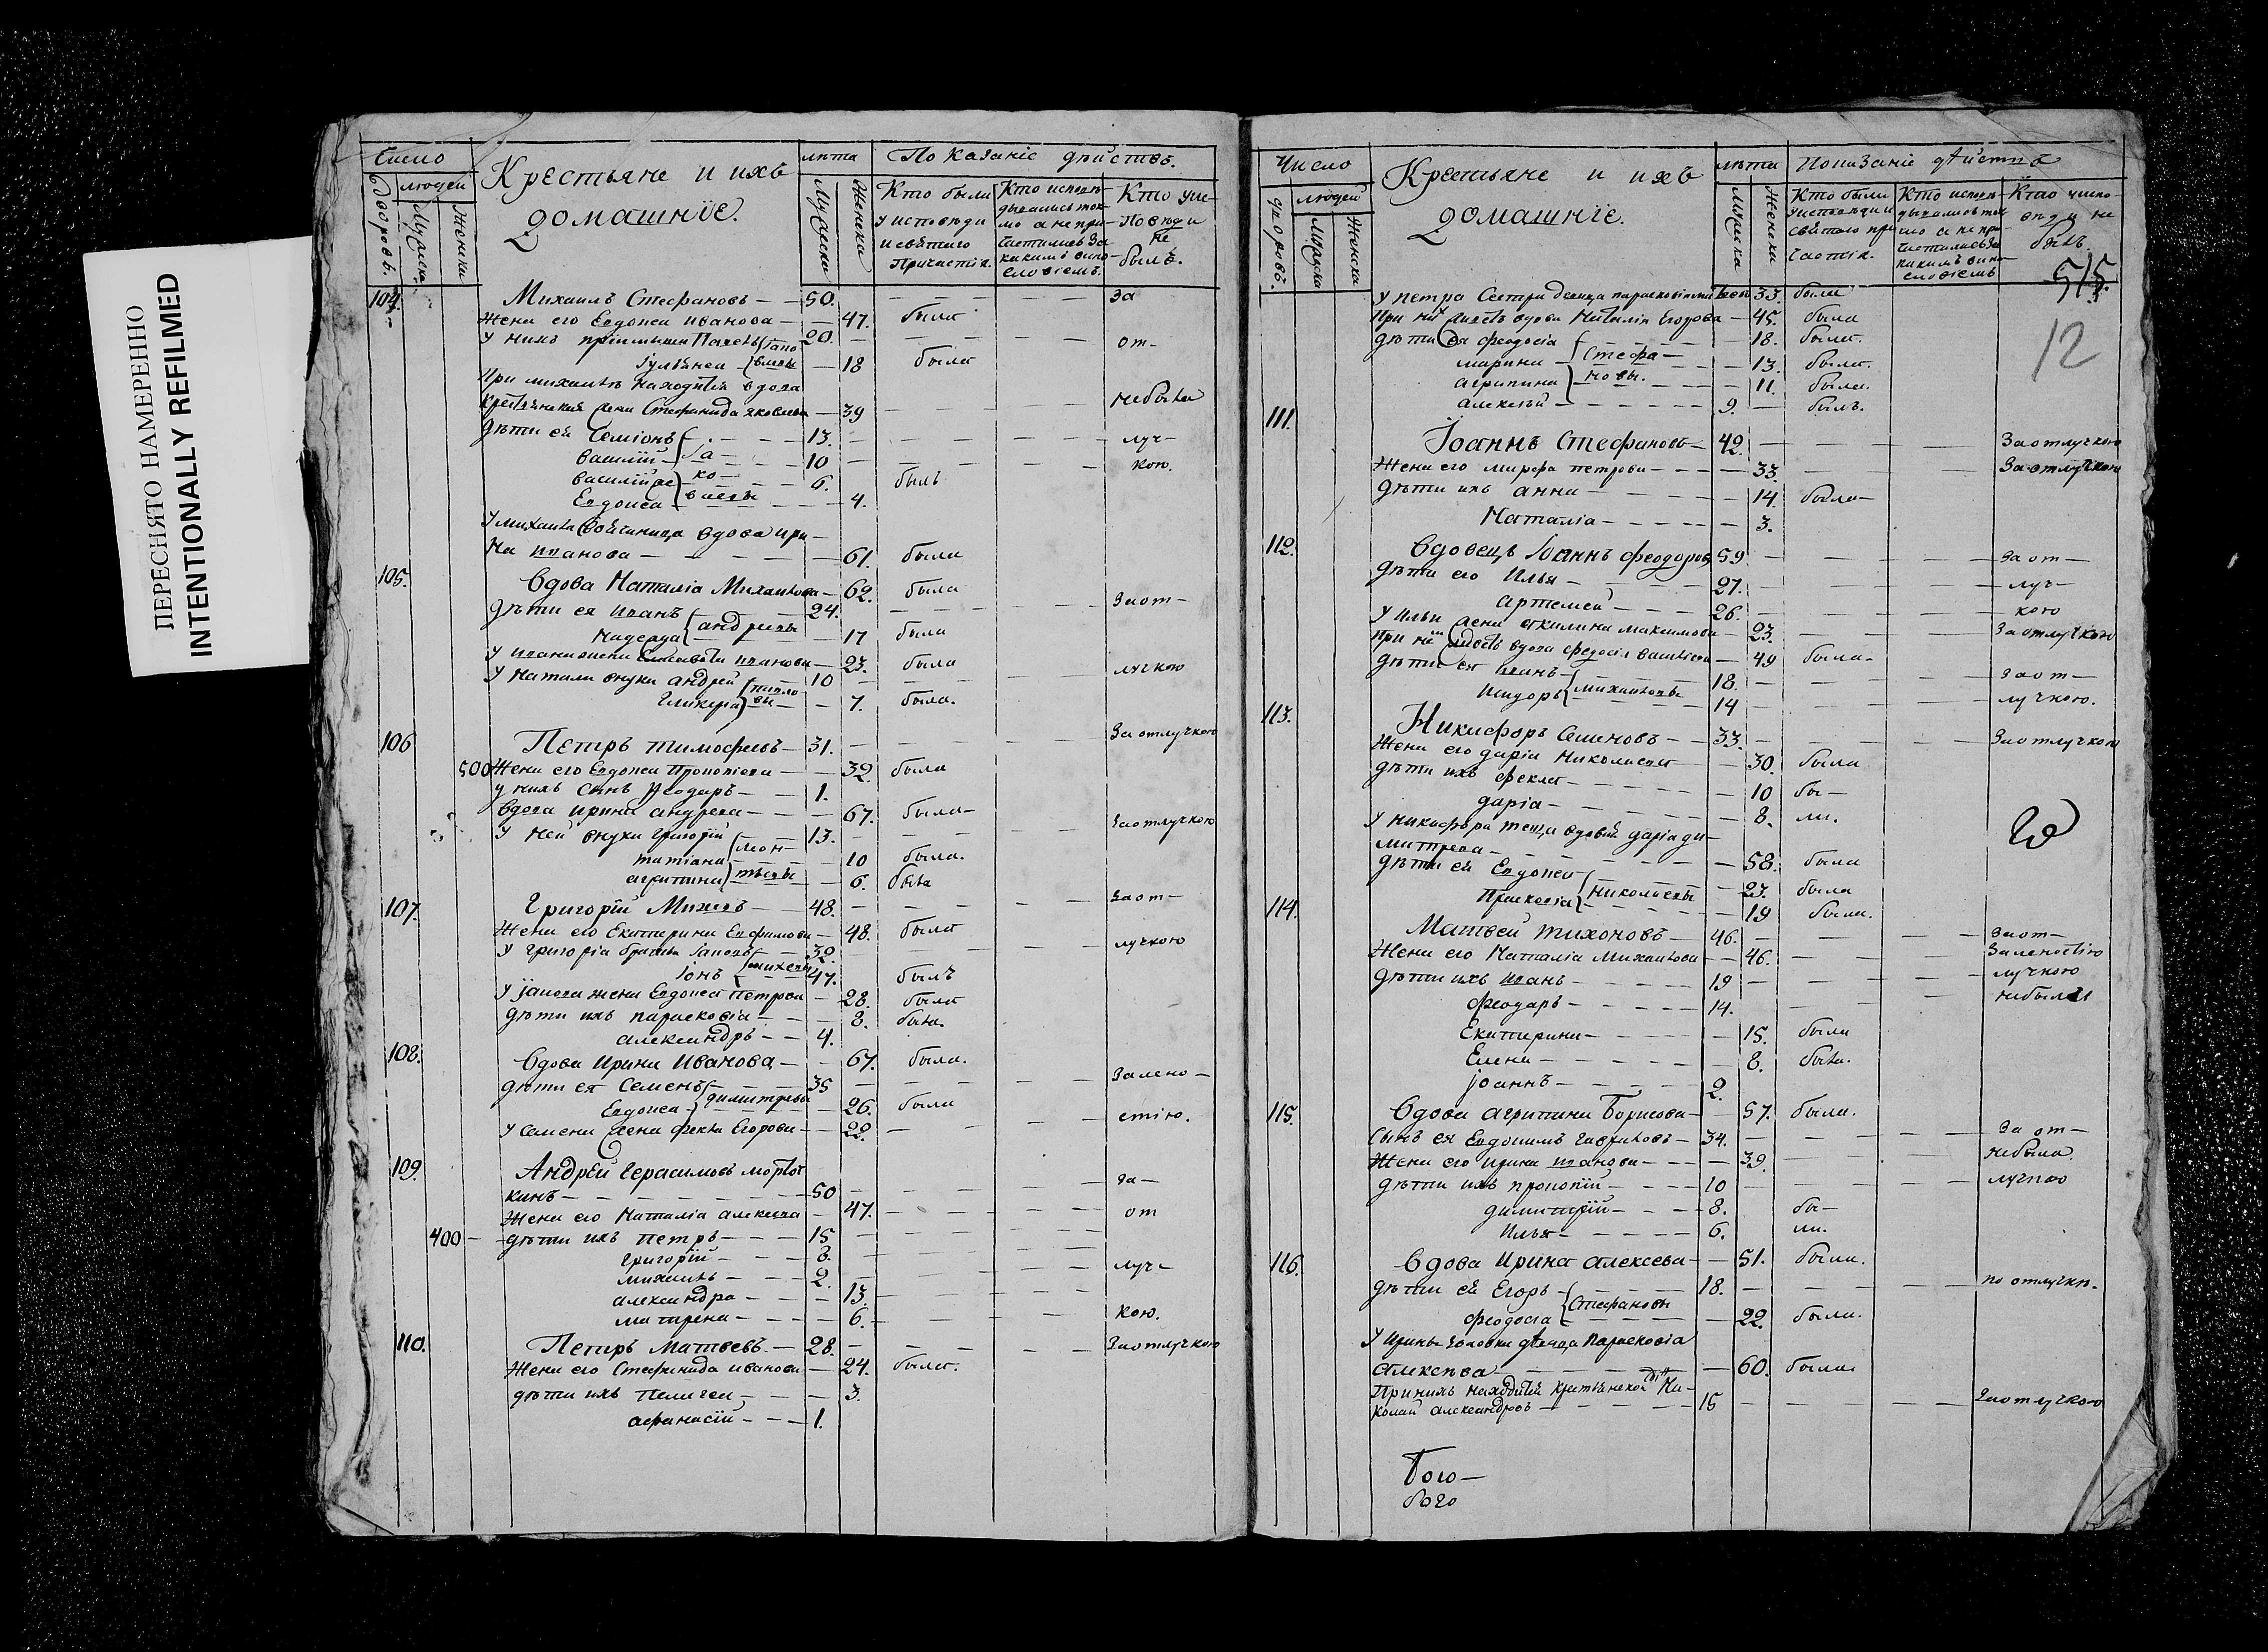 ПЕРЕСНЯТО НАМЕРЕННО
INTENTIONALLY REFILMED
Число
людей
Дворовъ.
Мужеска
Женска
Крестьяне и ихъ
домашніе.
лѣта
Мужеска
Женска
Показаніе дѣйствъ.
Кто были
у исповѣди
и святаго
Причастія.
Кто исповѣ-
дывались ток-
мо а не при-
частились за
какимъ вино-
словіемъ.
Кто у ис-
повѣди
не
былъ.
104. Михаилъ Стефановъ 50. за
Жена его Евдокеа Иванова 47. была
У нихъ пріимыши 20. от-
Іульянеа 18 была
При михаилѣ находится вдова
Крестьянская жена Стефанида яковлева 39 небыла
Дѣти ея Семіонъ 13. луч-
василій Іа- 10 кою.
василій же ко- 6. былъ
Евдокеа влевы 4.
У михаила вдова ири-
на иванова 61. была
105. Вдова Наталіа Михаилова 62. была
Дѣти ея иванъ 24. Заот-
андреевы 17 была
У ивана жена Елисавета иванова 23. была
У натали внуки андрей 10 лучкою
Гликера 7. была.
106 Петръ тимофеевъ 31. За отлучкою
500 Жена его Евдокеа Прокопіева 32 была
у нихъ сынъ Феодоръ 1.
Вдова ирина андреева 67. была
У ней внуки григорій 13. Заотлучкою
татіана леон- 10 была.
агрипина тьевы 6. была
107. Григорій Михеевъ 48. Заот-
Жена его Екатирина Евфимова 48. была
У григоріа братья Іаковъ 32. лучкою
Іонъ михеевы 47. былъ
У іакова жена Евдокеа Петрова 28. была
Дѣти ихъ парасковіа 8. была.
александръ 4.
108. Вдова Ирина Иванова 67. была.
Дѣти ея Семенъ 35 Залено-
Евдокеа димитревы 26. была
У семена жена фекла Егорова 22. стію.
109. Андрей Герасимовъ
кинъ 50 за-
Жена его Наталіа алексева 47. от
400 дѣти ихъ Петръ 15
григорій 8.
михаилъ 2. луч-
александра 13.
матрена 6. кою.
110. Петръ Матвевъ 28. Заотлучкою
Жена его Стефанида иванова 24. была.
дѣти ихъ Пелагеа 3.
афанасій 1.
Число
людей
дворовъ.
Мужеска
Женска
Крестьяне и ихъ
домашніе.
лѣта
Мужеска
Женска
Показаніе дѣйствъ
Кто были
у исповѣди и
святаго при
частія.
Кто исповѣ-
дывались ток
мо а не при-
частились за
какимъ вино-
словіемъ
Кто у испо-
вѣди не
былъ.
515.
12
У петра Сестра девица параскові 33. была
При ни вдова Наталіа Егорова 45. была
Дѣти ея феодосіа 18. была.
марина Стефа- 13. была.
агрипина новы. 11. была.
алексѣй 9. былъ.
111. Іоаннъ Стефановъ 42. Заотлучкою
Жена его марфа петрова 33. Заотлучкою
Дѣти ихъ анна 14. была
Наталіа 3.
112. Вдовецъ Іоаннъ феодоровъ 59 за от-
Дѣти его Илья 27. луч-
артемей 26. кою
У ильи жена акилина максимова 23. Заотлучкою
При не вдова федосіа василіева 49 была
Дѣти ея иванъ 18. Заот-
Исидоръ михаиловы 14 лучкою.
113. Никифоръ Семеновъ 33. Заотлучкою
Жена его даріа николаева 30. была
Дѣти ихъ фекла 10 бы-
даріа 8. ли.
У никифора теща вдовая даріа ди-
митрева 58. была
Дѣти ея Евдокеа 23. была
Прасковіа николаевы 19 была.
114. Матвей тихоновъ 46. Заот-
Жена его Наталіа Михаилова 46. Заленостію
Дѣти ихъ иванъ 19 лучкою
феодоръ 14. небылъ
Екатирина 15. была
Елена 8. была.
іоаннъ 2.
115. Вдова агрипина Борисова 57. была.
Сынъ ея Евдокимъ гавриловъ 34. За от-
Жена его ирина иванова 39. небыла.
Дѣти ихъ прокопій 10 лучкою
димитрій 8. бы-
Илья 6. ли.
116. Вдова Ирина алексева 51. была.
Дѣти ея Егоръ 18. по отлучкѣ.
феодосіа Стефановы 22. была.
У ирины золовка дѣвица Парасковіа
алексѣва 60. была
При нихъ находится крестьянской Ни-
колай александровъ 15 Заотлучкою
Бого-
бого